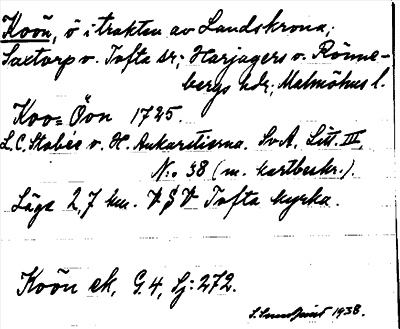 Koön, ö i trakten av Landskrona;
Saxtorp v. Tofta sr; Harjagers v. Rönne-
bergs hdr; Malmöhus l.
Koo=Öon 1725
L.C. Stobée v. H. Ankarstierna. SvA, Litt. III,
N:o 38 (m. kartbeskr.).
Läge 2,7 km. V S V Tofta kyrka.
Koön ek, G.4, Sj:272.
1938.